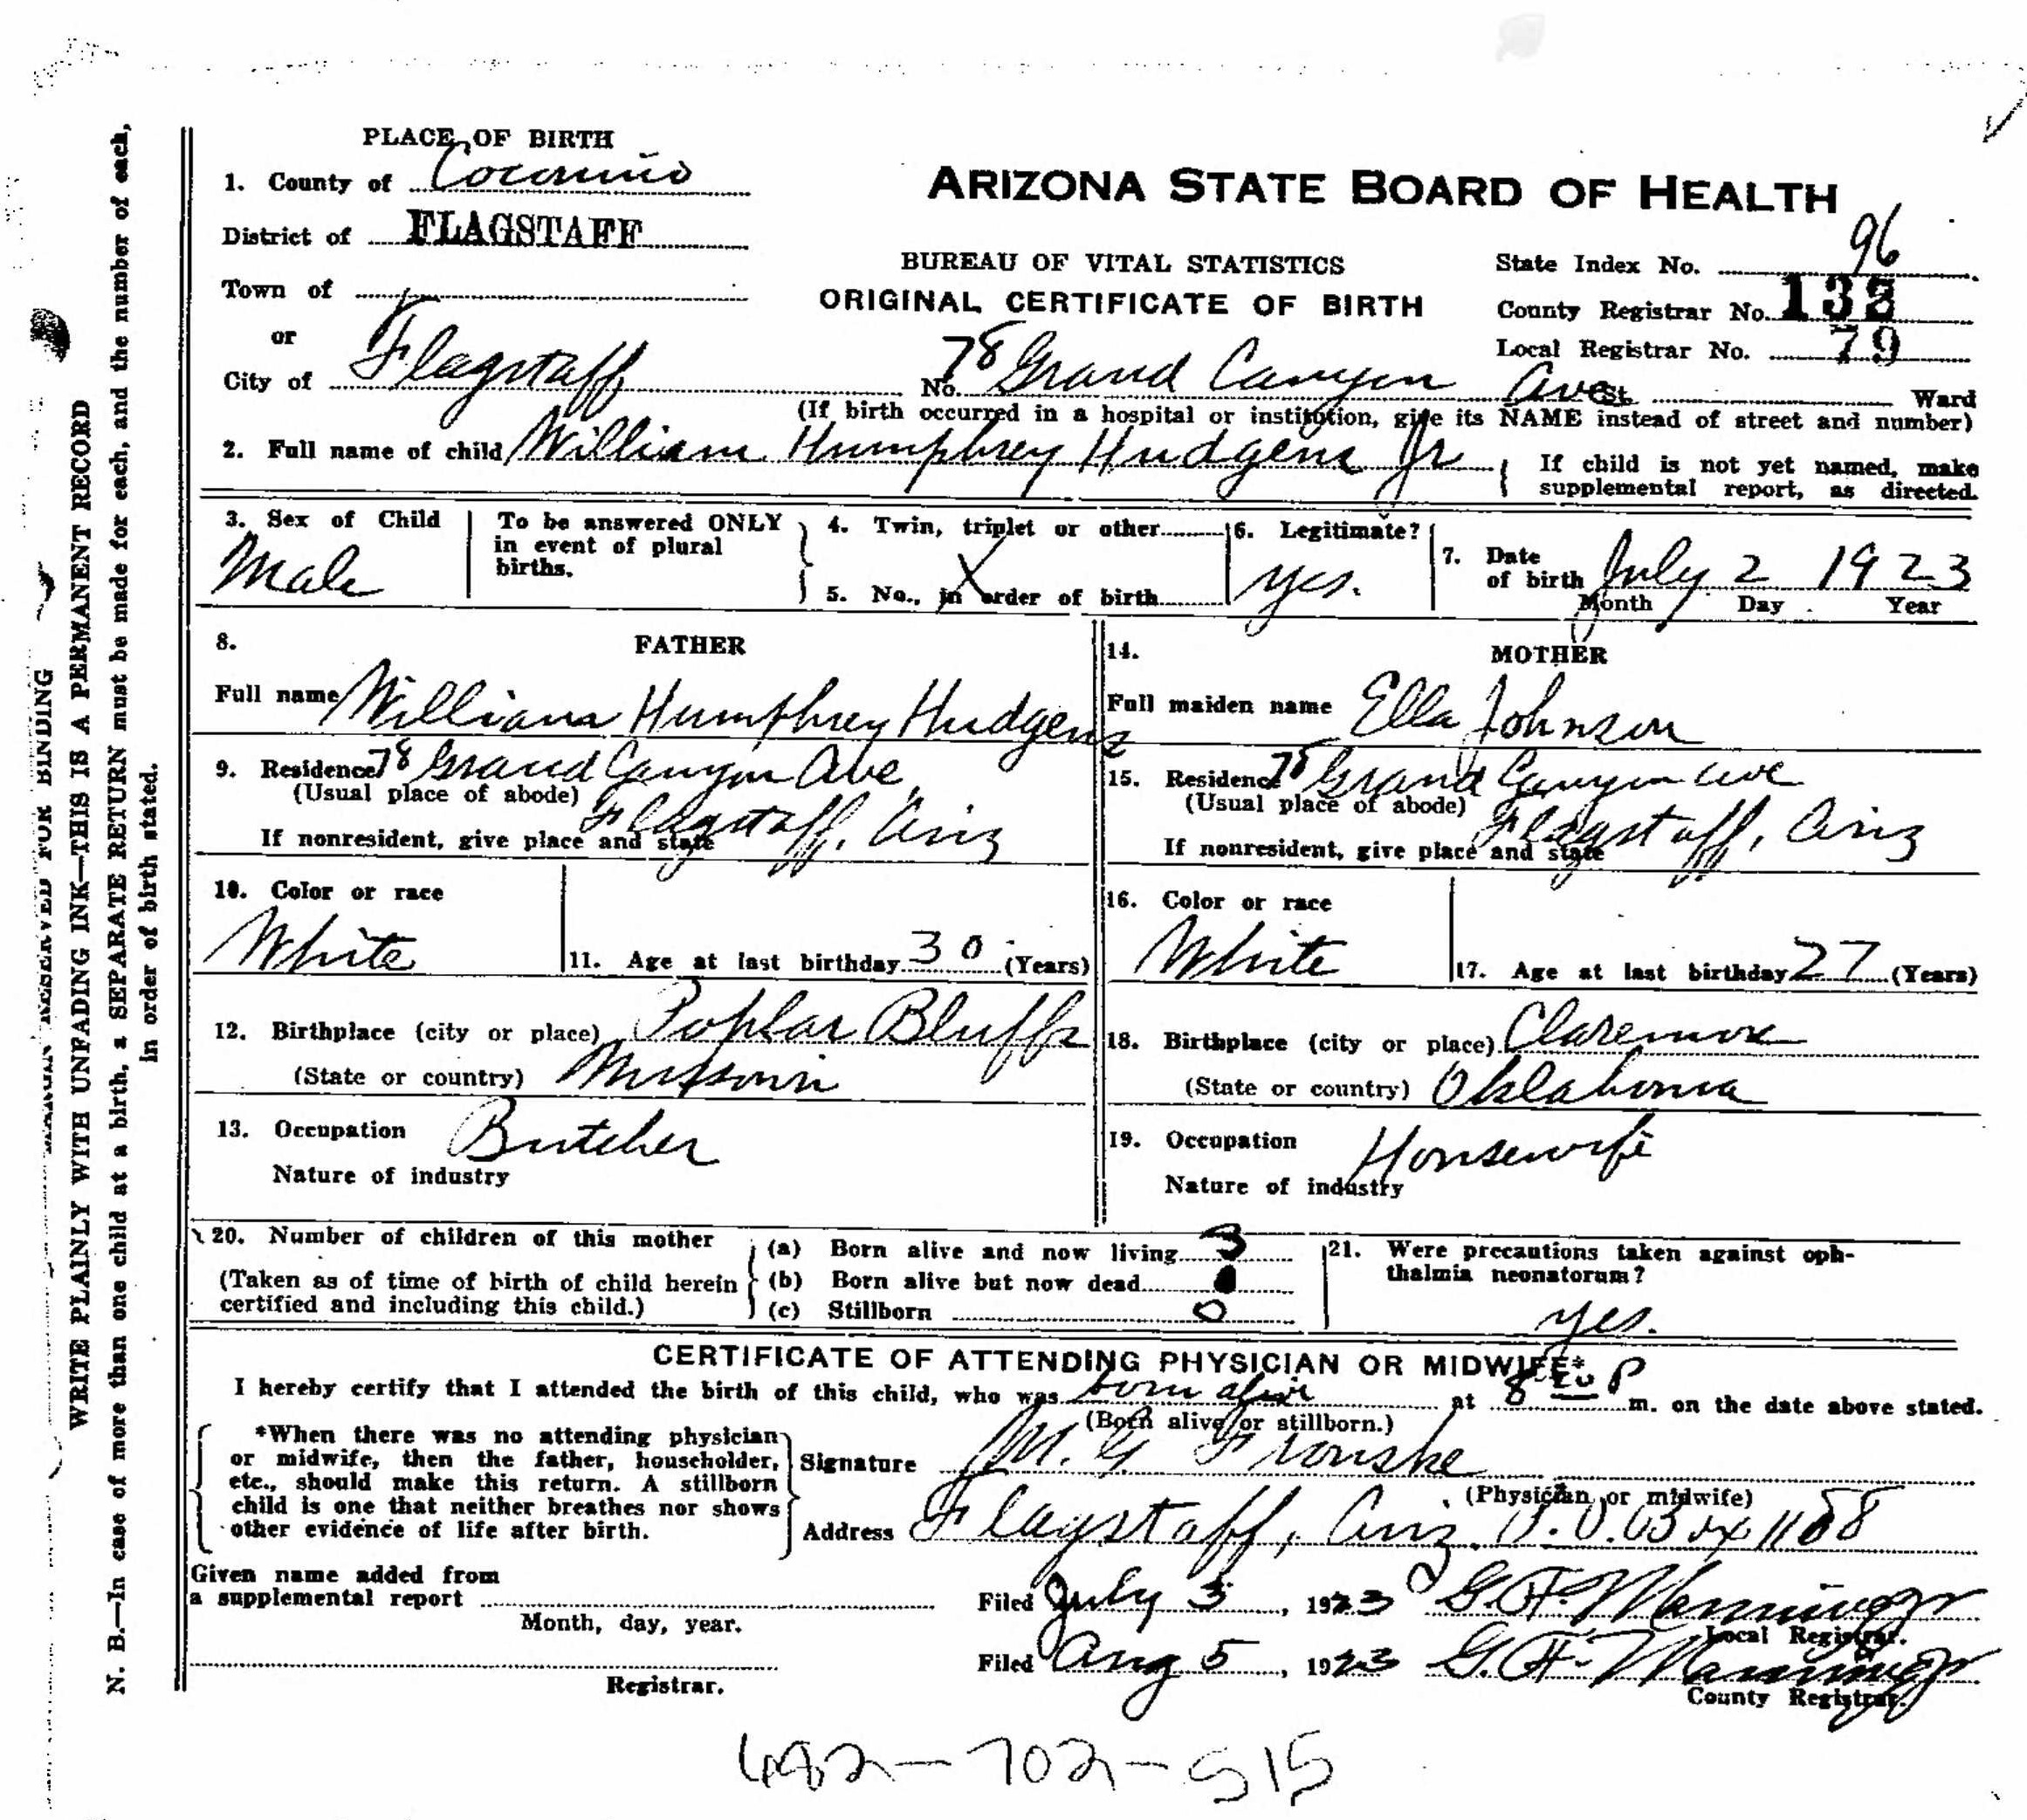 PLACE OF BIRTH
1. County of Coconino
ARIZONA STATE BOARD OF HEALTH
District of FLAGSTAFF
BUREAU OF VITAL STATISTICS
State Index No. 96
Town of
ORIGINAL CERTIFICATE OF BIRTH
County Registrar No. 132
or
Local Registrar No. 79
City of Flagstaff No. 78 Grand Canyon Ave St. Ward
(If birth occurred in a hospital or institution, give its NAME instead of street and number)
2. Full name of child William Humphrey Hudgens Jr
If child is not yet named, make
supplemental report, as directed.
3. Sex of Child
Male
To be answered ONLY
in event of plural
births.
4. Twin, triplet or other
5. No., in order of birth
X
6. Legitimate?
yes.
7. Date
of birth July 2 1923
Month Day Year
8. FATHER
Full name William Humphrey Hudgens
9. Residence 78 Grand Canyon Ave,
(Usual place of abode)
Flagstaff, Ariz
If nonresident, give place and state
10. Color or race
White
11. Age at last birthday 30 (Years)
12. Birthplace (city or place) Poplar Bluffs
(State or country) Missouri
13. Occupation Butcher
Nature of industry
14. MOTHER
Full maiden name Ella Johnson
15. Residence 78 Grand Canyon Ave
(Usual place of abode)
Flagstaff, Ariz
If nonresident, give place and state
16. Color or race
White
17. Age at last birthday 27 (Years)
18. Birthplace (city or place) Claremore
(State or country) Oklahoma
19. Occupation Housewife
Nature of industry
20. Number of children of this mother
(Taken as of time of birth of child herein
certified and including this child.)
(a) Born alive and now living 3
(b) Born alive but now dead
(c) Stillborn 0
21. Were precautions taken against oph-
thalmia neonatorum?
yes.
CERTIFICATE OF ATTENDING PHYSICIAN OR MIDWIFE*
I hereby certify that I attended the birth of this child, who was born alive at 8 P m. on the date above stated.
(Born alive or stillborn.)
*When there was no attending physician
or midwife, then the father, householder,
etc., should make this return. A stillborn
child is one that neither breathes nor shows
other evidence of life after birth.
Signature M. G. Fronske
(Physician or midwife)
Address Flagstaff, Ariz. P.O. Box
Given name added from
a supplemental report
Month, day, year.
Registrar.
Filed July 3, 1923 G.F. Manning Jr
Local Registrar.
Filed Aug 5, 1923 G.F. Manning Jr
County Registrar.
482-702-515
RESERVED FOR BINDING
WRITE PLAINLY WITH UNFADING INK—THIS IS A PERMANENT RECORD
N. B.—In case of more than one child at a birth, a SEPARATE RETURN must be made for each, and the number of each,
in order of birth stated.